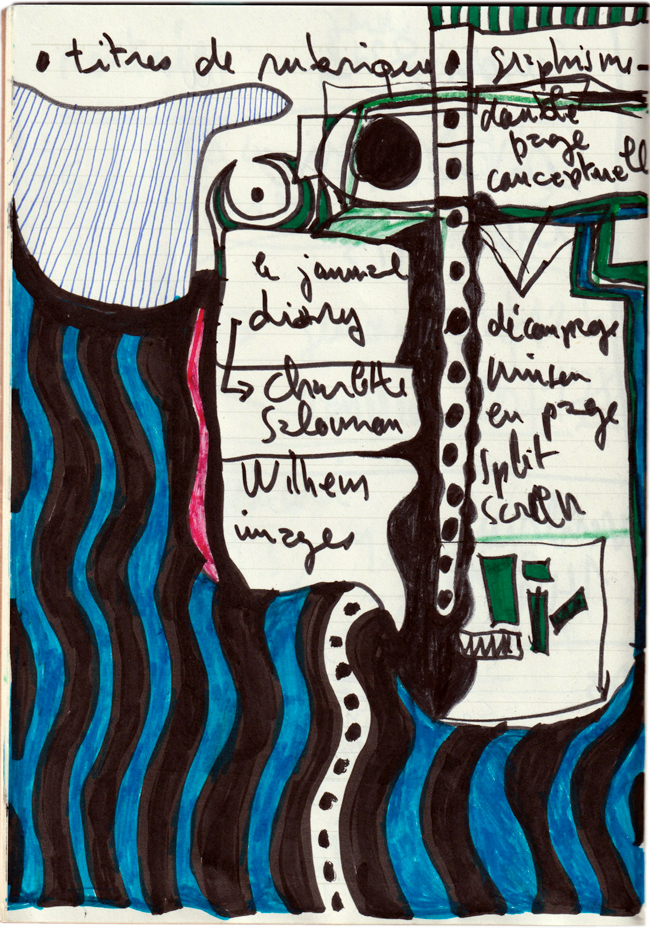 • titres de rubrique
graphisme
double
page
conceptuell
le journal
diary
→ Charlotte
Salomon
Wilhem
images
découpage
mise en
en page
split
screen